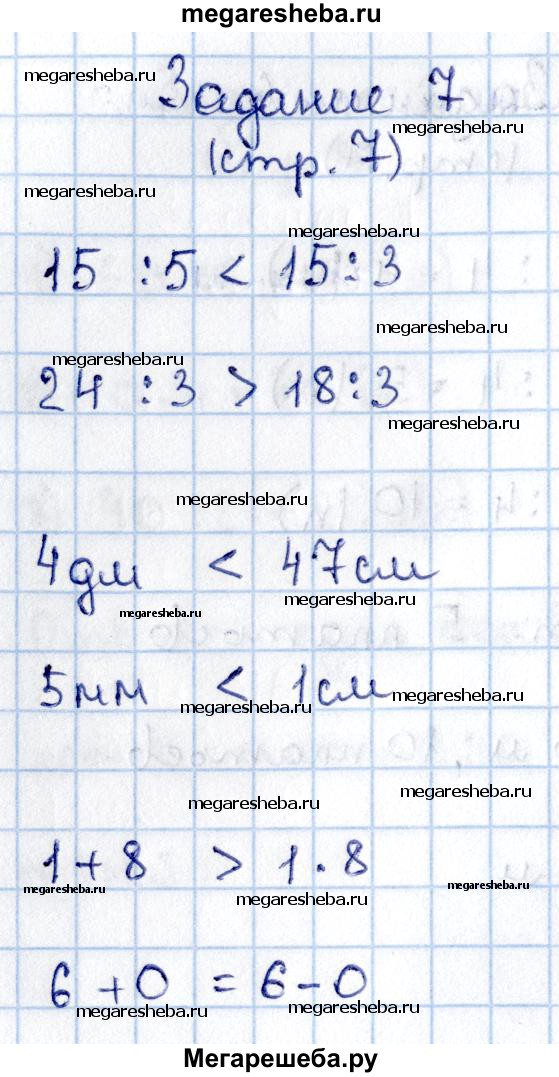 megaresheba.ru
megaresheba.ru
Задание 7
megaresheba.ru
(стр. 7)
megaresheba.ru
megaresheba.ru
15 :5 < 15:3
megaresheba.ru
megaresheba.ru
24 :3 > 18:3
megaresheba.ru
megaresheba.ru
4дм < 47см
megaresheba.ru
megaresheba.ru
5мм < 1см
megaresheba.ru
megaresheba.ru
megaresheba.ru
megaresheba.ru
1+8 > 1·8
megaresheba.ru
megaresheba.ru
megaresheba.ru
6+0 = 6-0
megaresheba.ru
megaresheba.ru
Мегарешеба.ру